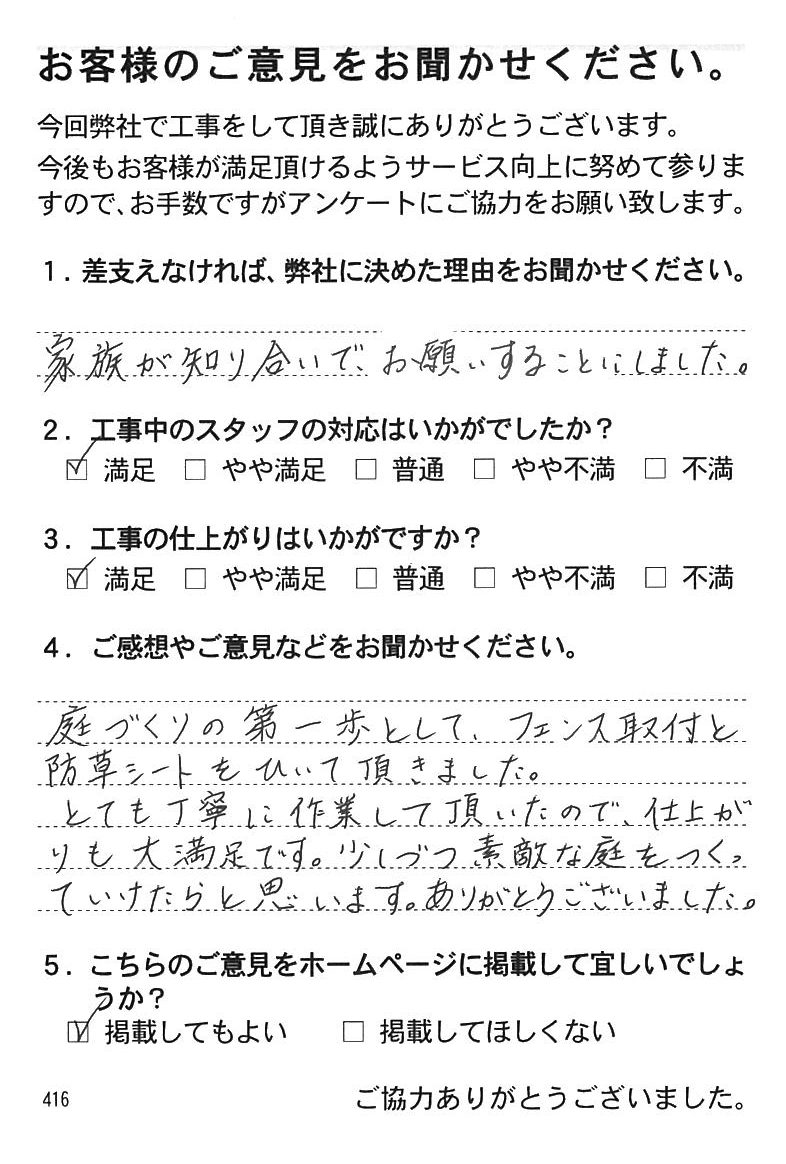 お客様のご意見をお聞かせください。
今回弊社で工事をして頂き誠にありがとうございます。
今後もお客様が満足頂けるようサービス向上に努めて参りま
すので、お手数ですがアンケートにご協力をお願い致します。
1．差支えなければ、弊社に決めた理由をお聞かせください。
家族が知り合いで、お願いすることにしました。
2．工事中のスタッフの対応はいかがでしたか？
☑ 満足 □ やや満足 □ 普通 □ やや不満 □ 不満
3．工事の仕上がりはいかがですか？
☑ 満足 □ やや満足 □ 普通 □ やや不満 □ 不満
4．ご感想やご意見などをお聞かせください。
庭づくりの第一歩として、フェンス取付と
防草シートをひいて頂きました。
とても丁寧に作業して頂いたので、仕上が
りも大満足です。少しづつ素敵な庭をつくっ
ていけたらと思います。ありがとうございました。
5．こちらのご意見をホームページに掲載して宜しいでしょ
うか？
☑ 掲載してもよい □ 掲載してほしくない
416 ご協力ありがとうございました。